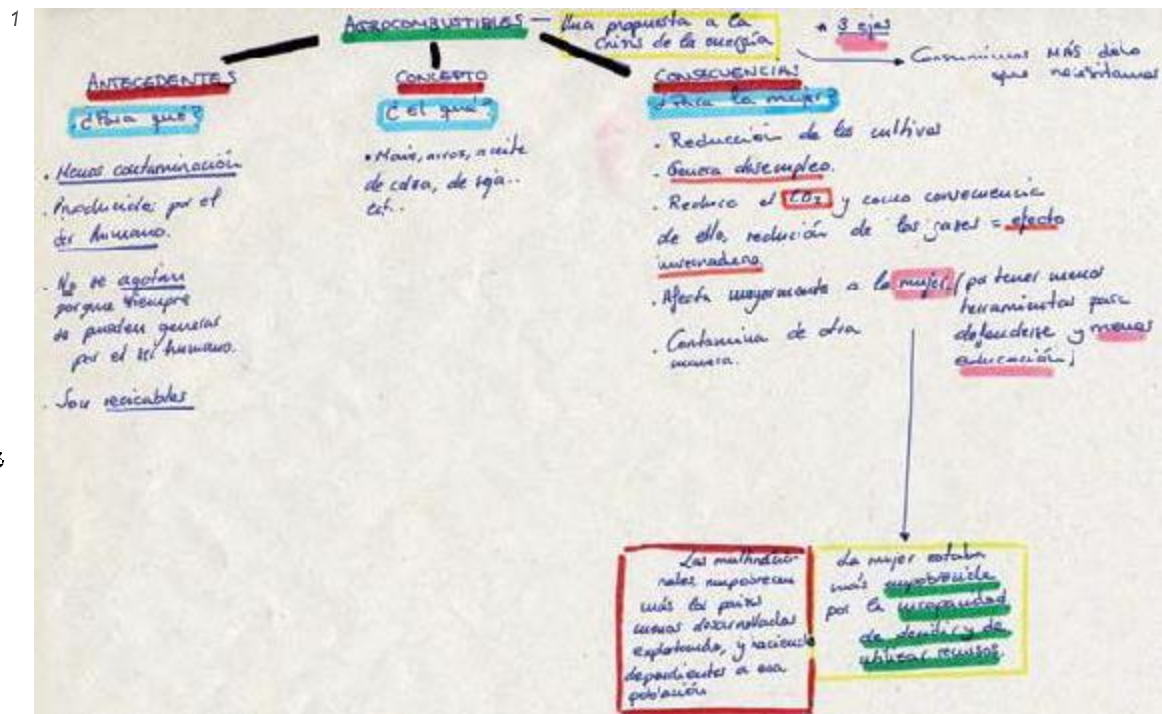 1
AGROCOMBUSTIBLES — Una propuesta a la
crisis de la energía
* 3 ejes
Consumimos MÁS de lo
que necesitamos
ANTECEDENTES
¿Para qué?
. Menos contaminación
. Producidos por el
ser humano.
. No se agotan
porque siempre
se pueden generar
por el ser humano.
. Son reciclables
CONCEPTO
¿el qué?
• Maíz, arroz, aceite
de colza, de soja..
CONSECUENCIAS
¿Para la mujer?
. Reducción de los cultivos
. Genera desempleo.
. Reduce el CO2 y como consecuencia
de ello, redución de los gases = efecto
invernadero
. Afecta mayormente a la mujer (por tener menos
herramientas para
defenderse y menos
educación)
. Contamina de otra
manera.
Las multinacio-
nales empobrecen
más los países
menos desarrollados
explotando, y haciendo
dependientes a esa
población
La mujer estaba
más empobrecida
por la incapacidad
de decidir y de
utilizar recursos.